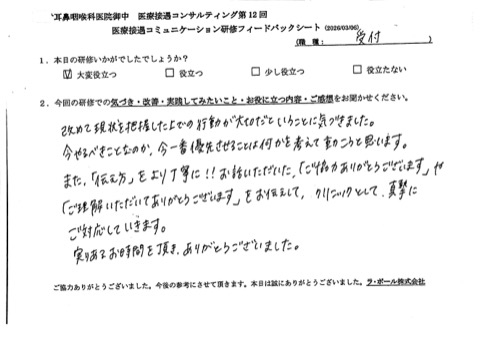 耳鼻咽喉科医院御中　医療接遇コンサルティング第12回
医療接遇コミュニケーション研修フィードバックシート（2026/03/06）
（職種：受付）
1．本日の研修いかがでしたでしょうか？
☑ 大変役立つ　□ 役立つ　□ 少し役立つ　□ 役立たない
2．今回の研修での気づき・改善・実践してみたいこと・お役に立つ内容・ご感想をお聞かせください。
改めて現状を把握した上での行動が大切だということに気づきました。
今やるべきことなのか、今一番優先させることは何かを考えて動こうと思います。
また、「伝え方」をより丁寧に！！お話いただいた、「ご協力ありがとうございます」や
「ご理解いただいてありがとうございます」をお伝えして、クリニックとして、真摯に
ご対応していきます。
実りあるお時間を頂き、ありがとうございました。
ご協力ありがとうございました。今後の参考にさせて頂きます。本日は誠にありがとうございました。ラ・ポール株式会社